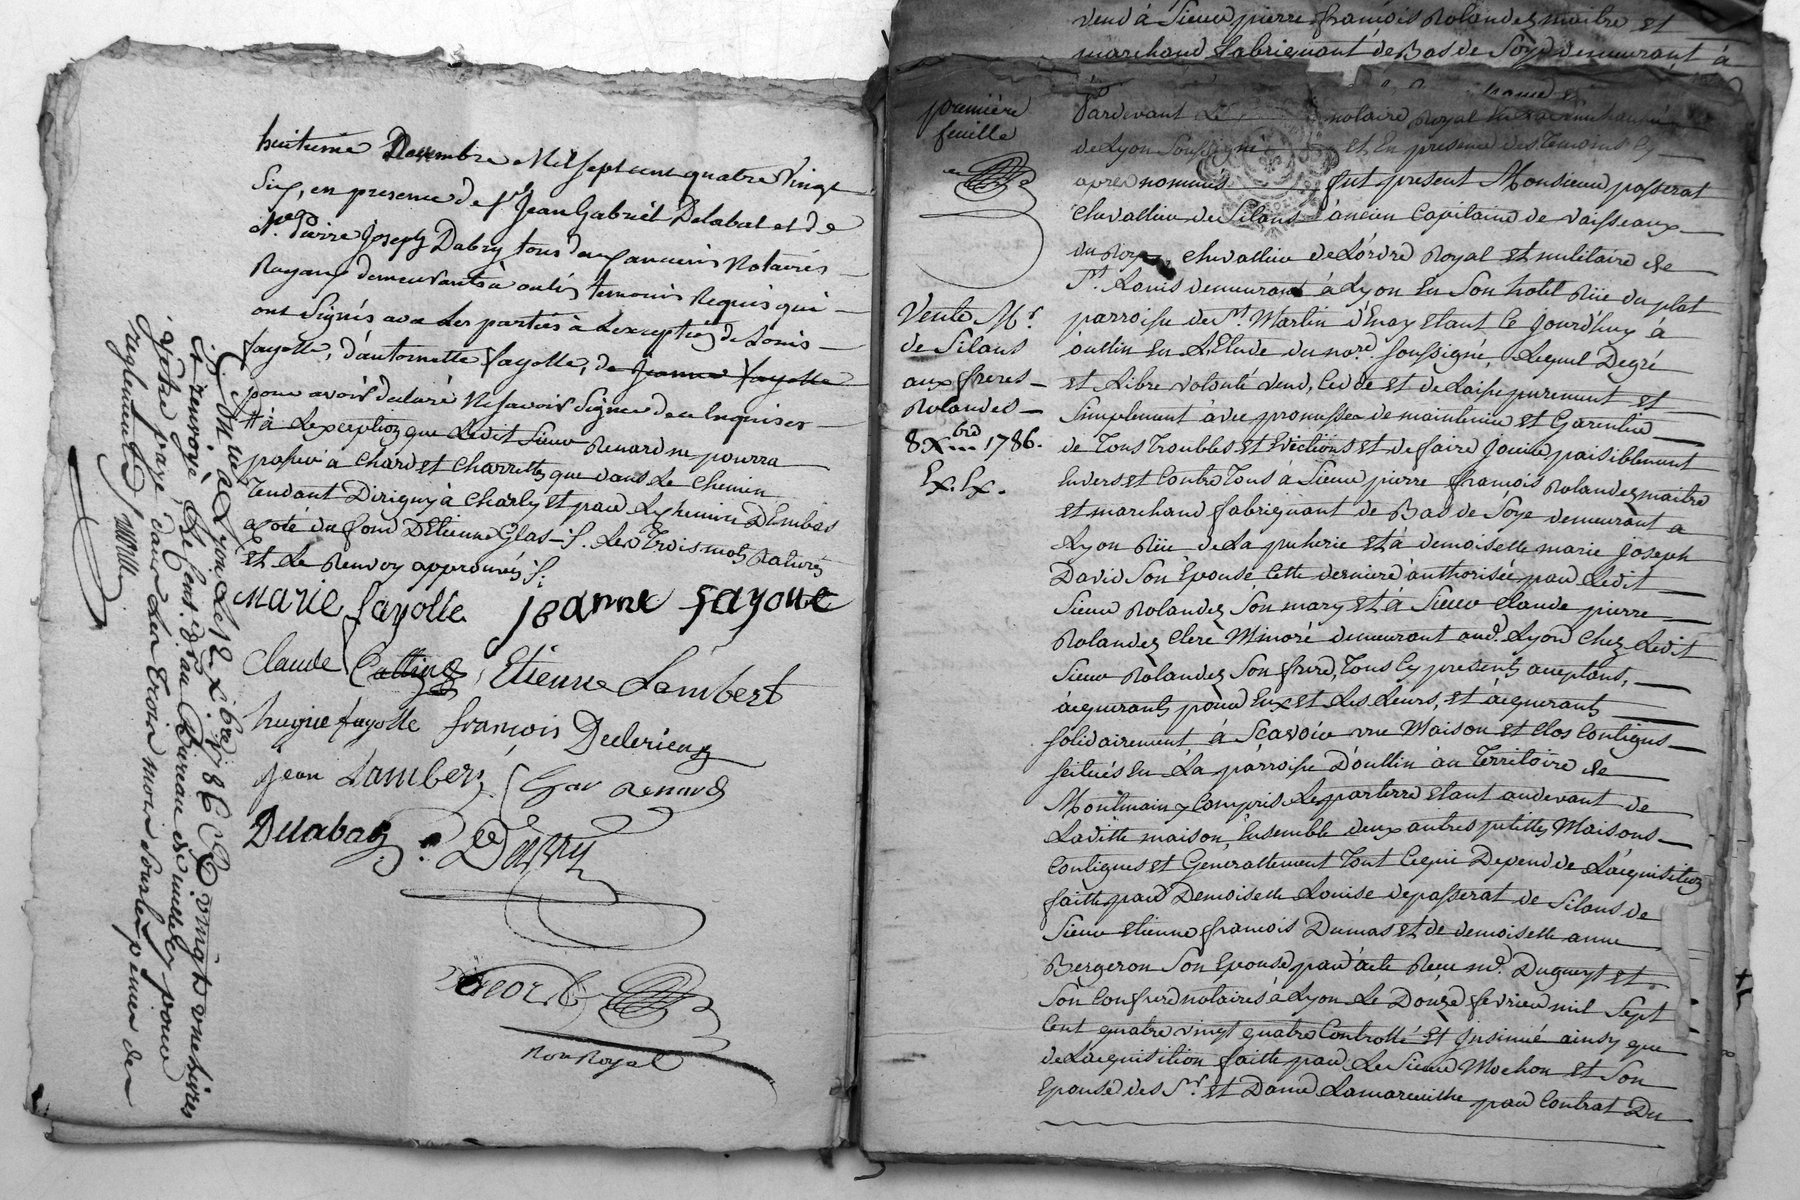 huitieme Decembre Mil sept cent quatre vingt
six, en presence de sr. Jean Gabriel Delabat et de
Me. Pierre Joseph Dabry tous deux anciens Notaires
Royaux demeurants à oulin temoins Requis qui
ont Signés avec Les parties à L'exception de Louis
fayolle, d'antoinette fayolle, de Jeanne fayolle
pour avoir declaré Ne savoir Signer de ce Enquises
# à L'exception que Ledit Sieur Renard ne pourra
passer à Char et Charrette que dans Le Chemin
Tendant D'irigny à Charly et par Le chemin D'Embas
a coté du fond D'Etienne Glas. Les Trois mots Raturés
Et Le Renvoy approuvés
Marie fayolle Jeanne fayolle
Claude Etienne Lambert
fayolle françois Declerieux
Jean Lambert Renard
Delabat Dabry
Non Royal
à Lyon Le 12 Xbre 178 vingt une livres
renvoyé Le Cent. dr. au Bureau de pour
Votre page dans Les trois mois sous les peines de
reglements
vend à Sieur pierre françois Rolandez maitre et
marchand fabriquant de Bas de Soye demeurant à
premiere
feuille
Vente Mr.
de Silans
aux freres
Rolandes
8 Xbre 1786.
Ex. Ex.
Pardevant Le notaire Royal
de Lyon Soussigné et En presence des Temoins Cy
après nommés fut present Monsieur passerat
Chevallier de Silans ancien Capitaine de Vaisseaux
du Roy, Chevallier de L'ordre Royal et militaire de
St. Louis demeurant à Lyon En Son hotel Rüe du plat
parroisse de St. Martin d'Enay Etant Ce Jourd'huy à
oullin En L'Etude du nore. soussigné, Lequel Degré
et Libre volonté vend, Cede et de Laisse purement et
Simplement avec promesse de maintenue et Garentie
de Tous Troubles et Evictions et de faire Jouir paisiblement
Envers et Contre Tous à Sieur pierre françois Rolandez maitre
et marchand fabriquant de Bas de Soye demeurant a
Lyon Rüe de La pecherie et à demoiselle marie Joseph
David Son Epouse Cette derniere authorisée par Ledit
Sieur Rolandez Son mary et à Sieur Claude pierre
Rolandez Clerc Minoré demeurant aud. Lyon Chez Ledit
Sieur Rolandez Son frere, Tous Cy presents acceptans,
acquerants pour Eux et Les Leurs, et acquerants
Solidairement à Sçavoir une Maison et Clos Contigus
scitués En La parroisse D'oullin au Territoire de
Montmain y Compris Le parterre etant audevant de
Laditte maison, Ensemble deux autres petittes Maisons
Contigues et Generallement Tout Ce qui Depend de L'acquisition
faitte par Demoiselle Louise de passerat de Silans de
Sieur Etienne françois Dumas et de demoiselle anne
Bergeron Son Epouse par acte Reçu Me. Dugueyt et
Son Confrere notaires à Lyon Le Douze fevrier mil Sept
Cent quatre vingt quatre Controllé et Insinué ainsy que
de L'acquisition faitte par Le Sieur Mochon et Son
Epouse des Sr. et Dame Lamareuilhe par Contrat Du